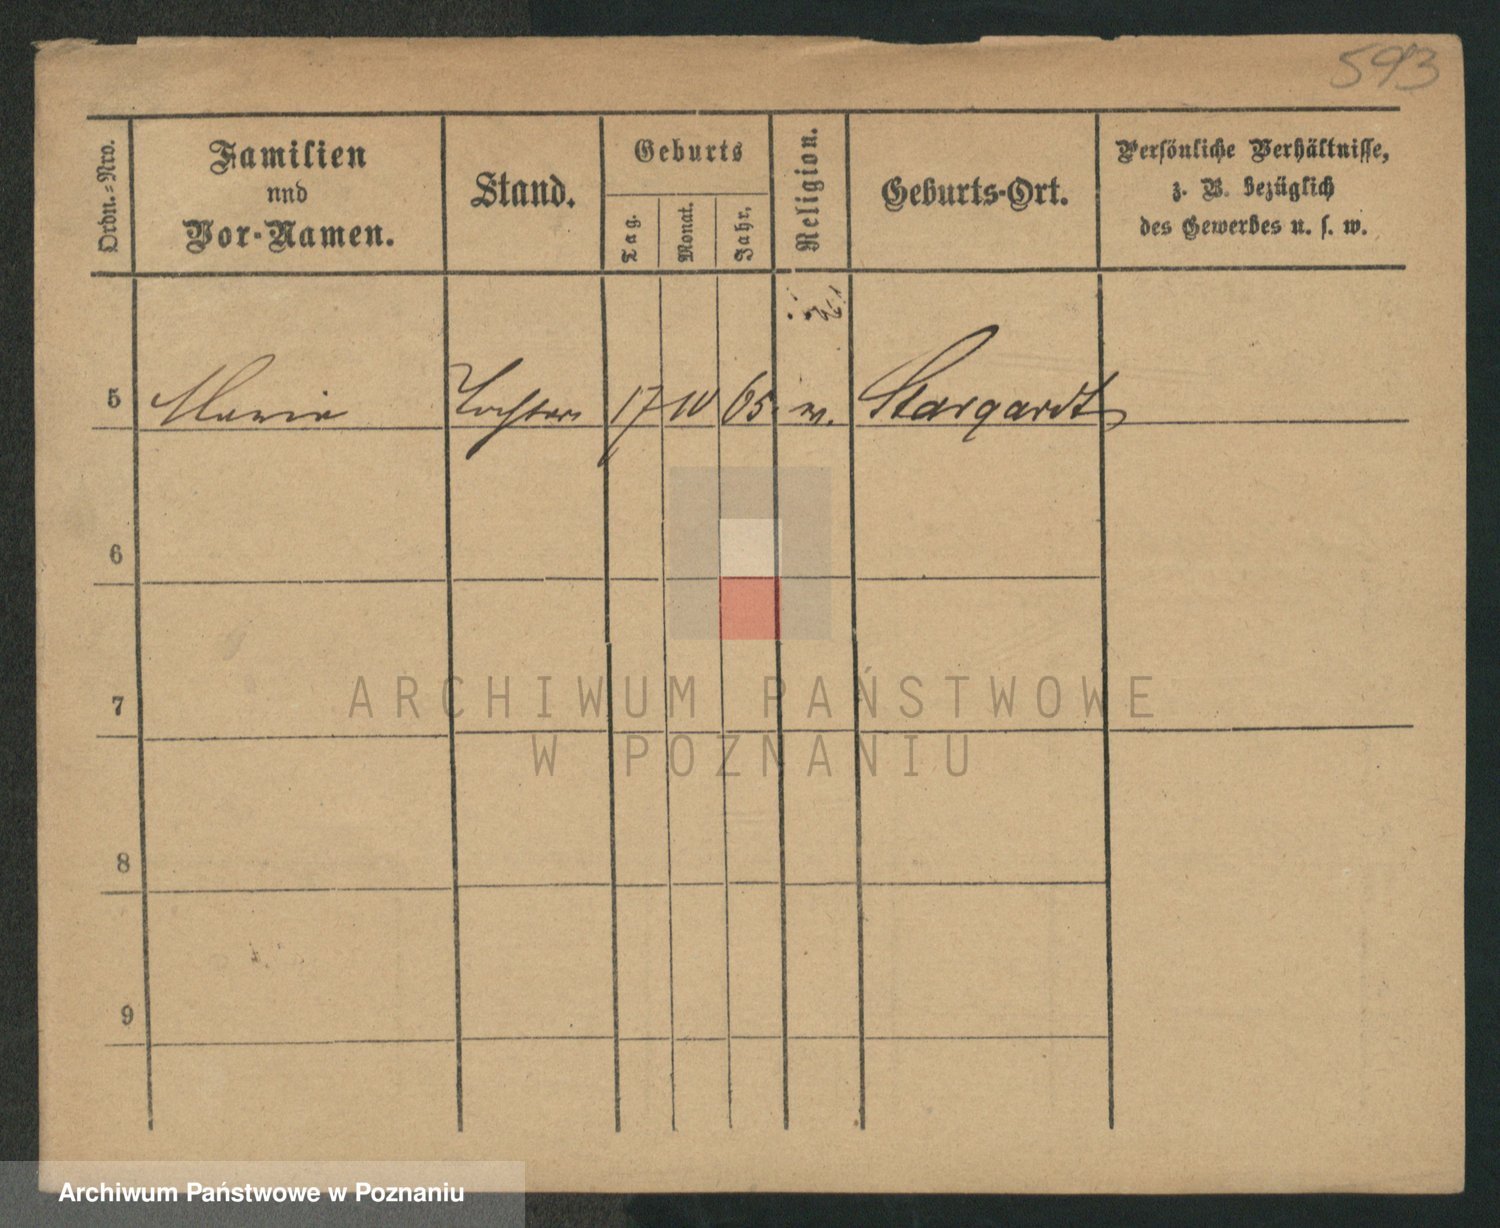 593
Ordn.-Nro.
Familien
und
Vor-Namen.
Stand.
Geburts
Tag.
Monat.
Jahr.
Religion.
Geburts-Ort.
Persönliche Verhältnisse,
z. B. bezüglich
des Gewerbes u. s. w.
5 Marie Tochter 17 10 65. Stargardt
6
7
8
9
ARCHIWUM PAŃSTWOWE
W POZNANIU
Archiwum Państwowe w Poznaniu